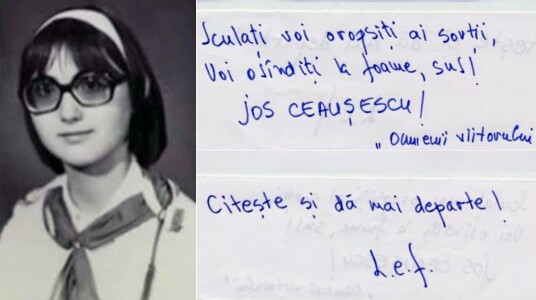 Sculați voi oropsiți ai sorții,
Voi osîndiți la foame, sus!
JOS CEAUȘESCU!
„Oamenii viitorului
Citește și dă mai departe!
L.e.f.